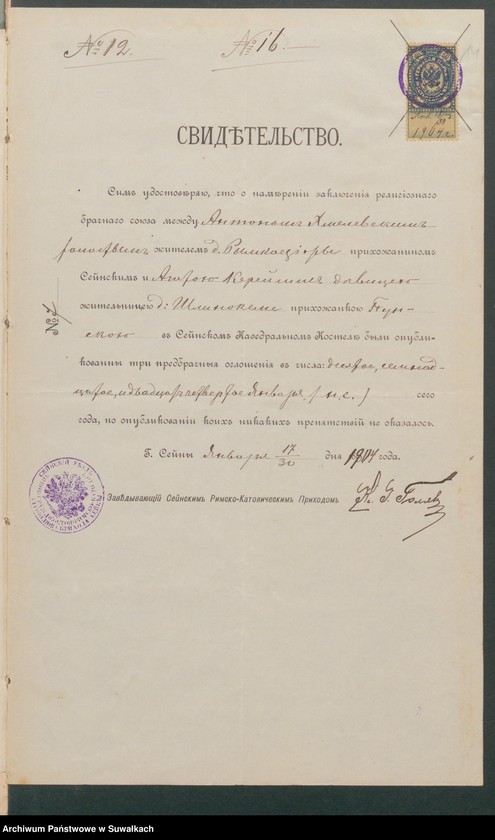 № 12. № 16.
14
1904 г.
СВИДѢТЕЛЬСТВО.
Симъ удостовѣряю, что о намѣреніи заключенія религіознаго
брачнаго союза между Антономъ Хмелевскимъ
холостымъ жителемъ д. прихожаниномъ
Сейнскимъ и дѣвицею
жительницею д: прихожанкою Пун-
скою въ Сейнскомъ Каѳедральномъ Костелѣ были опубли-
кованны три предбрачныя оглашенія въ числа: десятое, семнад-
цатое, и двадцать четвертое Января /н. с./ сего
года, по опубликованіи коихъ никакихъ препятствій не оказалось.
Г. Сейны Января 17/30 дня 1904 года.
Завѣдывающій Сейнскимъ Римско-Католическимъ Приходомъ
№ 4
Archiwum Państwowe w Suwałkach